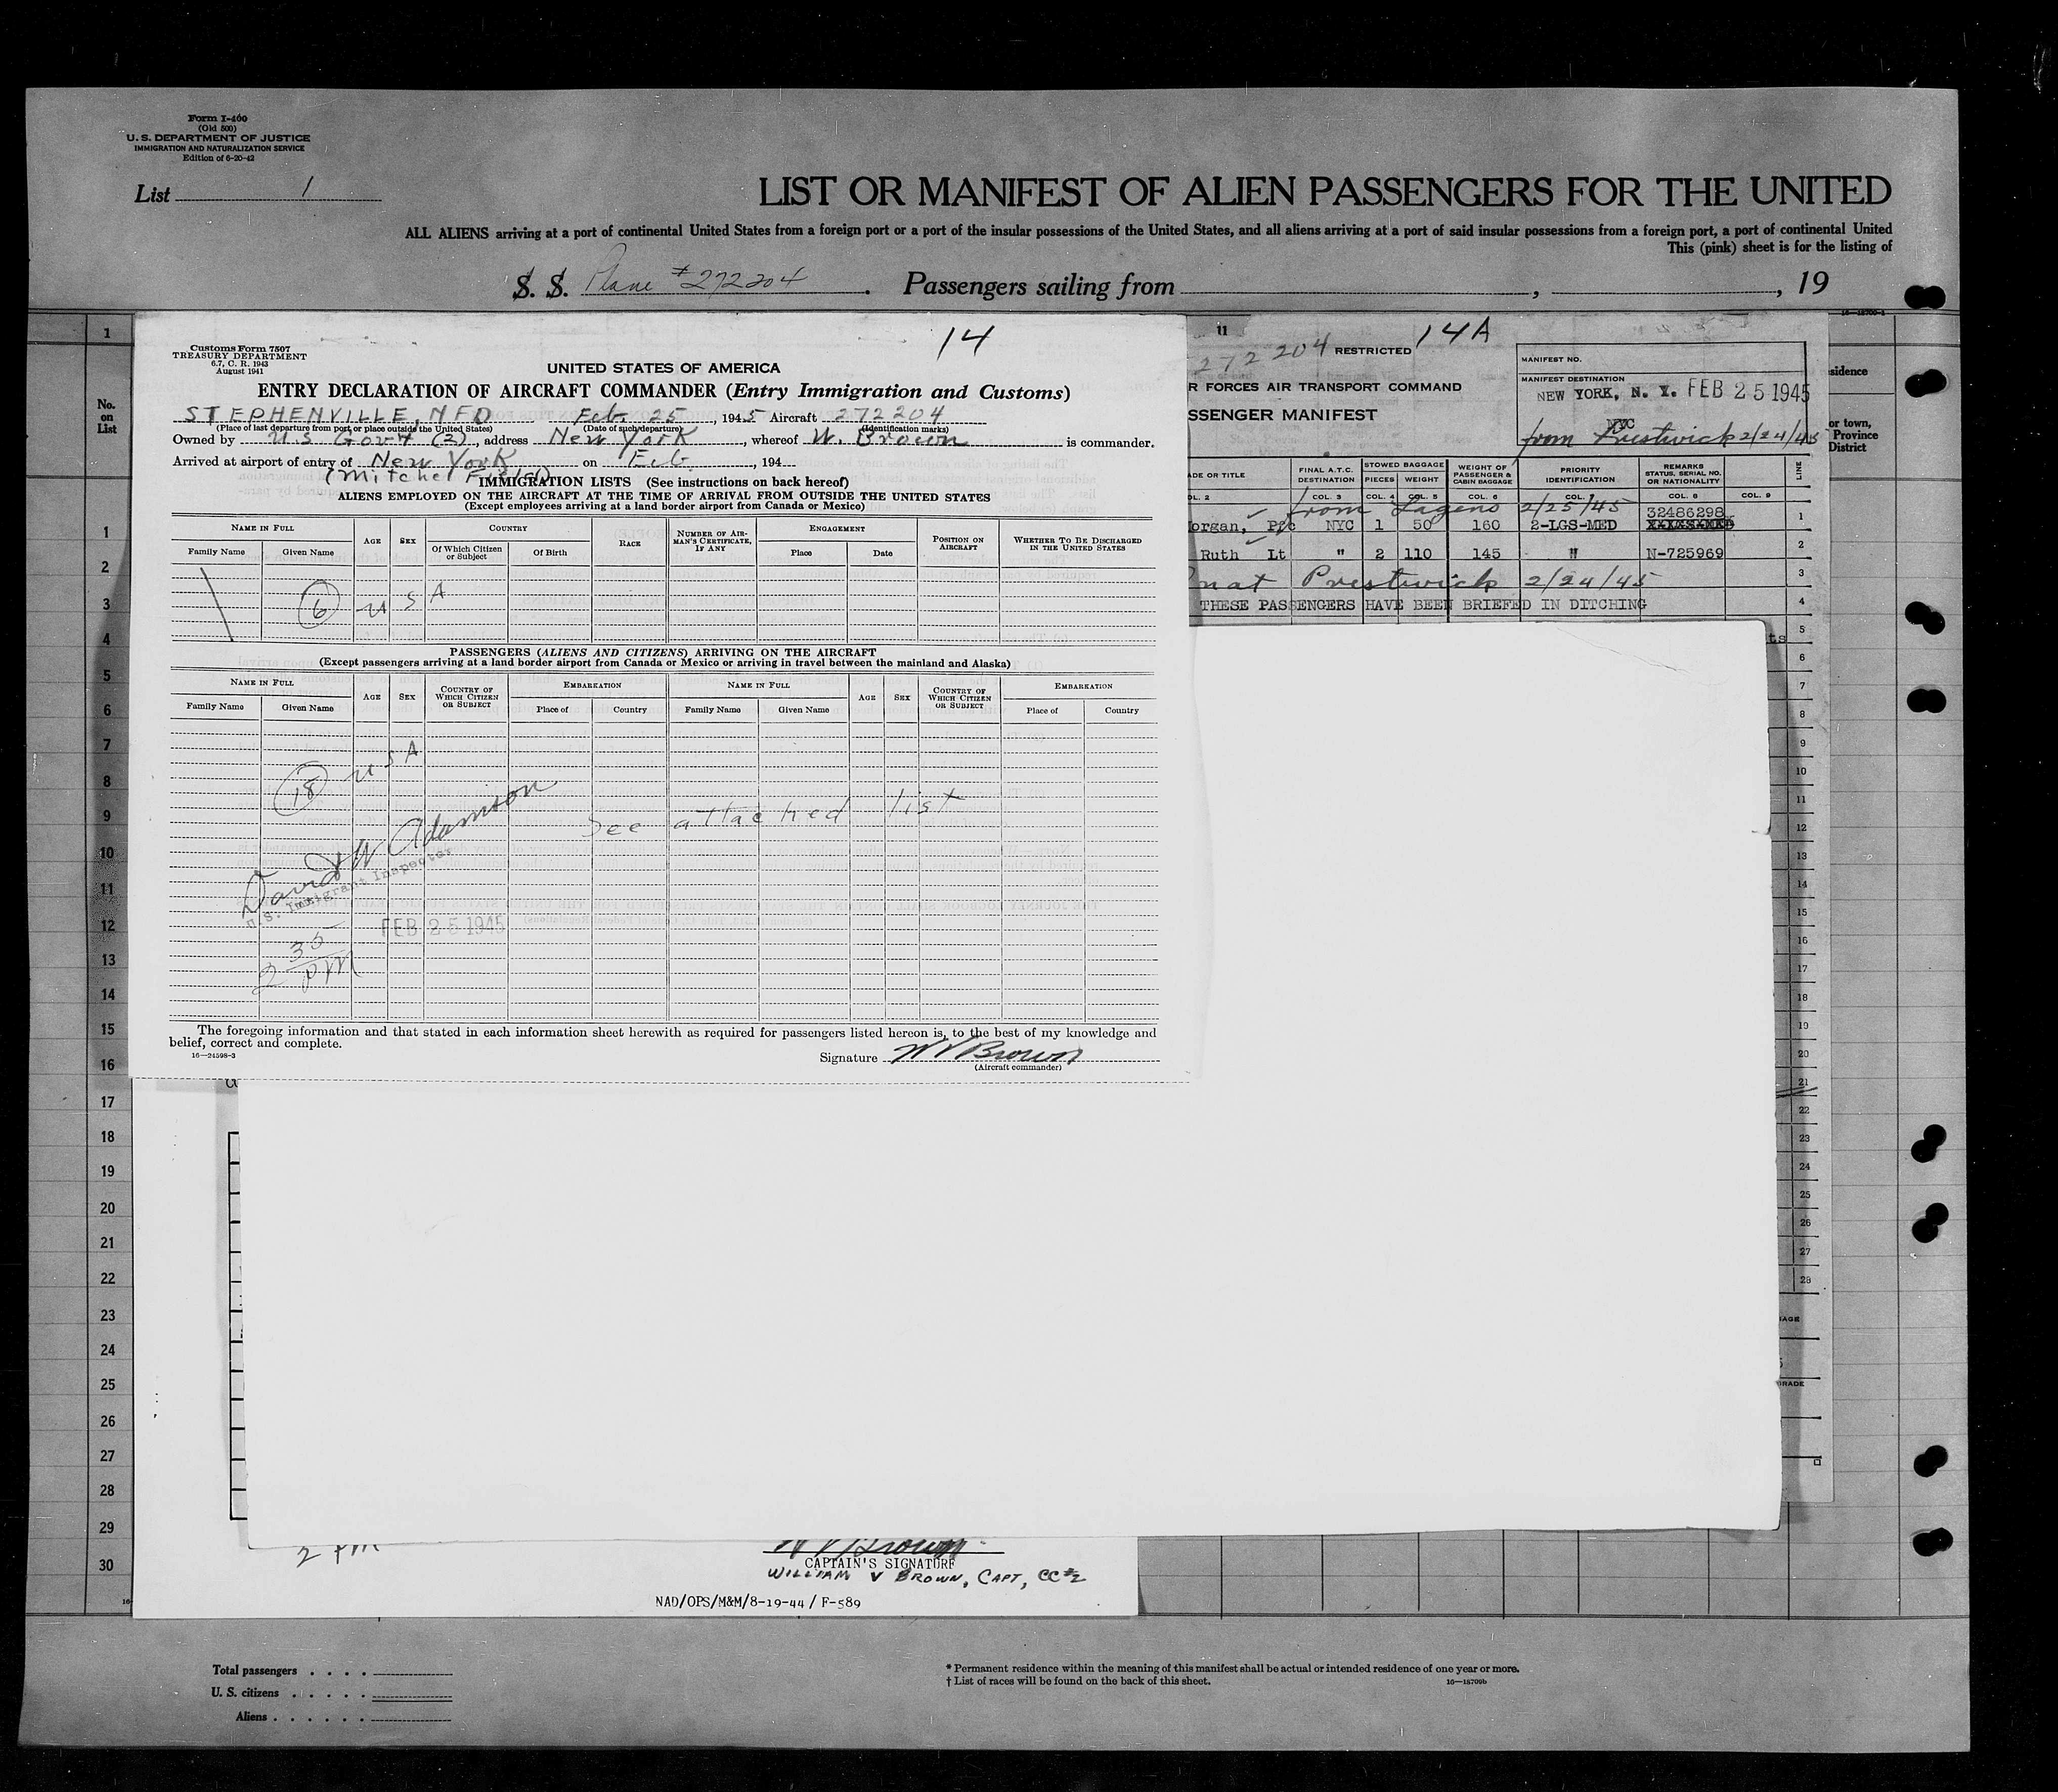 Form I-400
(Old 500)
U. S. DEPARTMENT OF JUSTICE
IMMIGRATION AND NATURALIZATION SERVICE
Edition of 6-20-42
List 1
LIST OR MANIFEST OF ALIEN PASSENGERS FOR THE UNITED
ALL ALIENS arriving at a port of continental United States from a foreign port or a port of the insular possessions of the United States, and all aliens arriving at a port of said insular possessions from a foreign port, a port of continental United
This (pink) sheet is for the listing of
S. S. Plane #272204. Passengers sailing from , , 19
No. on List
1
14
Customs Form 7507
TREASURY DEPARTMENT
6.7, C. R. 1943
August 1941
UNITED STATES OF AMERICA
ENTRY DECLARATION OF AIRCRAFT COMMANDER (Entry Immigration and Customs)
STEPHENVILLE, NFD Feb. 25, 1945 Aircraft 272204
(Place of last departure from port or place outside the United States) (Date of such departure) (Identification marks)
Owned by U.S Gov't (2), address New York, whereof W. Brown is commander.
Arrived at airport of entry of New York on Feb, 194
(Mitchel Field)
IMMIGRATION LISTS (See instructions on back hereof)
ALIENS EMPLOYED ON THE AIRCRAFT AT THE TIME OF ARRIVAL FROM OUTSIDE THE UNITED STATES
(Except employees arriving at a land border airport from Canada or Mexico)
NAME IN FULL AGE SEX COUNTRY RACE NUMBER OF AIRMAN'S CERTIFICATE, IF ANY ENGAGEMENT POSITION ON AIRCRAFT WHETHER TO BE DISCHARGED IN THE UNITED STATES
Family Name Given Name Of Which Citizen or Subject Of Birth Place Date
6 U S A
PASSENGERS (ALIENS AND CITIZENS) ARRIVING ON THE AIRCRAFT
(Except passengers arriving at a land border airport from Canada or Mexico or arriving in travel between the mainland and Alaska)
NAME IN FULL AGE SEX COUNTRY OF WHICH CITIZEN OR SUBJECT EMBARKATION NAME IN FULL AGE SEX COUNTRY OF WHICH CITIZEN OR SUBJECT EMBARKATION
Family Name Given Name Place of Country Family Name Given Name Place of Country
18 U S A
See attached list
David W Adamson
U.S. Immigrant Inspector
FEB 25 1945
2 35 PM
The foregoing information and that stated in each information sheet herewith as required for passengers listed hereon is, to the best of my knowledge and
belief, correct and complete.
16—24598-3
Signature W V Brown
(Aircraft commander)
11
272204 RESTRICTED 14A
R FORCES AIR TRANSPORT COMMAND
SSENGER MANIFEST
MANIFEST NO.
MANIFEST DESTINATION
NEW YORK, N. Y. FEB 25 1945
NYC
from Prestwick 2/24/45
DE OR TITLE FINAL A.T.C. DESTINATION STOWED BAGGAGE PIECES WEIGHT WEIGHT OF PASSENGER & CABIN BAGGAGE PRIORITY IDENTIFICATION REMARKS STATUS, SERIAL NO. OR NATIONALITY LINE
OL. 2 COL. 3 COL. 4 COL. 5 COL. 6 COL. COL. 8 COL. 9
from Lagens 2/25/45
32486298
organ, Pfc NYC 1 50 160 2-LGS-MED
Ruth Lt " 2 110 145 " N-725969
Prestwick 2/24/45
THESE PASSENGERS HAVE BEEN BRIEFED IN DITCHING
ts
1
2
3
4
5
6
7
8
9
10
11
12
13
14
15
16
17
18
19
20
21
22
23
24
25
26
27
28
AGE
GRADE
sidence
or town,
Province
District
1
2
3
4
5
6
7
8
9
10
11
12
13
14
15
16
17
18
19
20
21
22
23
24
25
26
27
28
29
30
2 PM
W V Brown
CAPTAIN'S SIGNATURE
WILLIAM V BROWN, CAPT, CC#2
NAD/OPS/M&M/8-19-44 / F-589
Total passengers . . . .
U. S. citizens . . . . .
Aliens . . . . . .
* Permanent residence within the meaning of this manifest shall be actual or intended residence of one year or more.
† List of races will be found on the back of this sheet.
16—18709b